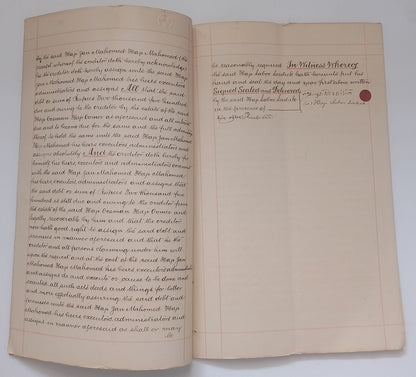 by the said Haji Jan Mahomed Haji Mahomed (the
receipt whereof the creditor doth hereby acknowledge)
he the creditor doth hereby assign unto the said Haji
Jan Mahomed Haji Mahomed his heirs executors
administrators and assigns All that the said
debt or sum of Rupees Two thousand five hundred
due and owing to the creditor by the said
Haji Oosman Haji Oomer as aforesaid and all interest
due and to become due for the same and the full
thereof to hold the same until the said Haji Jan Mahomed
Haji Mahomed his heirs executors administrators and
assigns absolutely And the creditor doth hereby for
himself his heirs executors and administrators covenant
with the said Haji Jan Mahomed Haji Mahomed
his heirs executors administrators and assigns that the
said debt or sum of Rupees Two thousand five
hundred is still due and owing to the creditor from
the estate of the said Haji Oosman Haji Oomer and
legally recoverable by him and that the creditor
now hath good right to assign the said debt and
premises in manner aforesaid and that he the
creditor and all persons claiming under him will
upon the request and at the cost of the said Haji Jan
Mahomed Haji Mahomed his heirs executors administrators
and assigns do and execute or cause to be done and
executed all such acts deeds and things for better
and more effectually assuring the said debt and
premises unto the said Haji Jan Mahomed Haji
Mahomed his heirs executors administrators and
assigns in manner aforesaid as shall or may
be
be reasonably required In Witness Whereof
the said Haji hath hereunto put his
hand and seal the day and year first above written
Signed Sealed and Delivered
by the said Haji
in the presence of